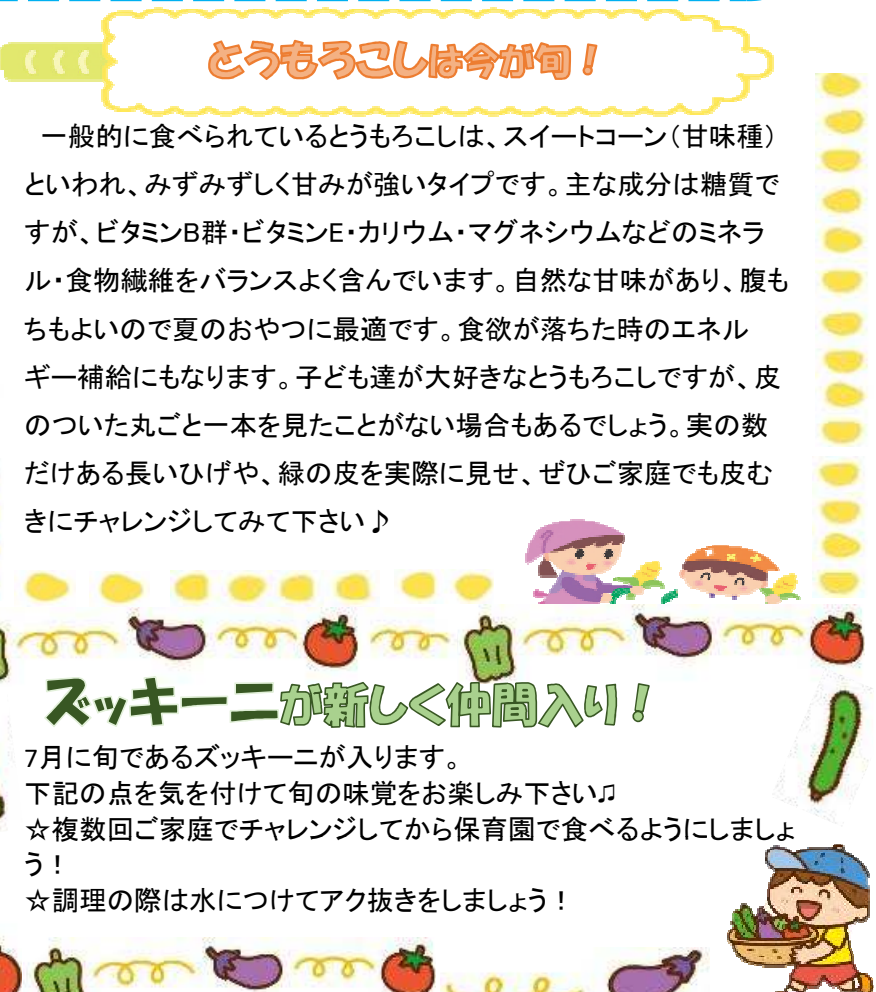 とうもろこしは今が旬！
一般的に食べられているとうもろこしは、スイートコーン（甘味種）
といわれ、みずみずしく甘みが強いタイプです。主な成分は糖質で
すが、ビタミンB群・ビタミンE・カリウム・マグネシウムなどのミネラ
ル・食物繊維をバランスよく含んでいます。自然な甘味があり、腹も
ちもよいので夏のおやつに最適です。食欲が落ちた時のエネル
ギー補給にもなります。子ども達が大好きなとうもろこしですが、皮
のついた丸ごと一本を見たことがない場合もあるでしょう。実の数
だけある長いひげや、緑の皮を実際に見せ、ぜひご家庭でも皮む
きにチャレンジしてみて下さい♪
ズッキーニが新しく仲間入り！
7月に旬であるズッキーニが入ります。
下記の点を気を付けて旬の味覚をお楽しみ下さい♫
☆複数回ご家庭でチャレンジしてから保育園で食べるようにしましょ
う！
☆調理の際は水につけてアク抜きをしましょう！